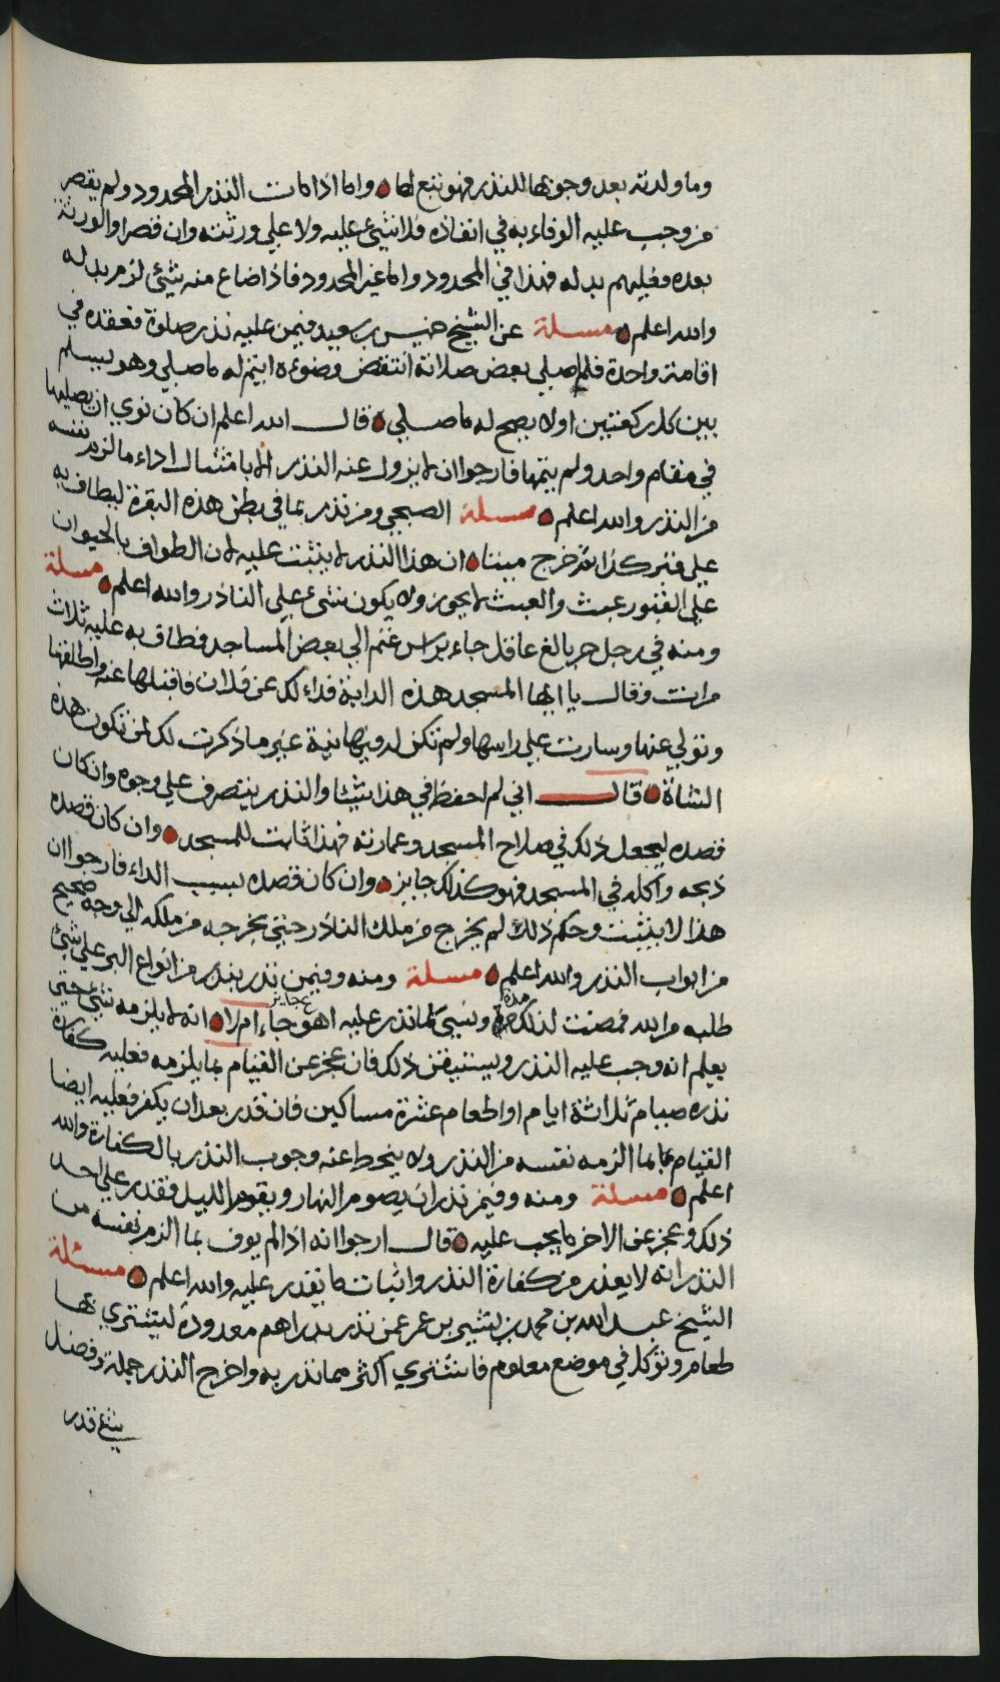 وما ولدته بعد وجوبها للنذر فهو تبع لها واما اذا مات النذر المحدود ولم يقصر
من وجب عليه الوفاء به في انفاذه فلا شيء عليه ولا علي ورثته وان قصرا والورثة
بعده فعليهم بدله فهذا في المحدود واما غير المحدود فاذا ضاع منه شيئ لزم بدله
والله اعلم مسلة عن الشيخ خميس بن سعيد فيمن عليه نذر صلوة فعقده في
اقامة واحدة فلما صلي بعض صلاته انتقض وضوءه ايتم له ما صلي وهو يسلم
بين كل ركعتين اولا يصح له ما صلي قال الله اعلم ان كان نوي ان يصليها
في مقام واحد ولم يتمها فارجوا ان لا يزول عنه النذر الا بامتثال اداء ما لزم نفسه
من النذر والله اعلم مسلة الصبحي ومن نذر بما في بطن هذه البقرة ليطاف به
علي قبر كذا ثم خرج ميتا ان هذا النذر لا يثبت عليه لان الطواف بالحيوان
علي القبور عبث والعبث لا يجوز ولا يكون شيء علي الناذر والله اعلم مسلة
ومنه في رجل حر بالغ عاقل جاء براس غنم الي بعض المساجد فطاف به عليه ثلاث
مرات وقال يا ايها المسجد هذه الدابة فداء لك عن فلان فاقبلها عنه واطلقها
وتولي عنها وسارت علي راسها ولم تكن له فيها نية غير ما ذكرت لك لمن تكون هذه
الشاة قال اني لم احفظ في هذا شيئا والنذر يتصرف علي وجوه وان كان
قصده ليجعل ذلك في صلاح المسجد وعمارته فهذا ثابت للمسجد وان كان قصده
ذبحه واكله في المسجد فهو كذلك جايز وان كان قصده بسبب الداء فارجوا ان
هذا لا يثبت وحكم ذلك لم يخرج من ملك الناذر حتي يخرجه من ملكه الي وجه صحيح
من ابواب النذر والله اعلم مسلة ومنه وفيمن نذر بنذر من انواع البر علي شيئ
طلبه من الله فمضت لذلك مدة ونسي ما نذر عليه اهو جاء ام لا انه لا يلزمه شيئ حتي
يعلم انه وجب عليه النذر ويستيقن ذلك فان عجز عن القيام بما يلزمه فعليه كفارة
نذره صيام ثلاثة ايام او اطعام عشرة مساكين فان قدر بعد ان يكفر فعليه ايضا
القيام بما الزمه نفسه من النذر ولا ينحط عنه وجوب النذر بالكفارة والله
اعلم مسلة ومنه وفيمن نذر ان يصوم النهار ويقوم الليل فقدر علي احد
ذلك وعجز عن الاخر ما يجب عليه قال ارجوا انه اذا لم يوف بما الزم نفسه من
النذر انه لا يعذر من كفارة النذر واتيان ما يقدر عليه والله اعلم مسئلة
الشيخ عبد الله بن محمد بن بشير بن عمر عمن نذر بدراهم معدودة ليشتري بها
طعام وتؤكل في موضع معلوم فاشتري اكثر مما نذر به واخرج النذر جملة وفضل
شيئ قدر